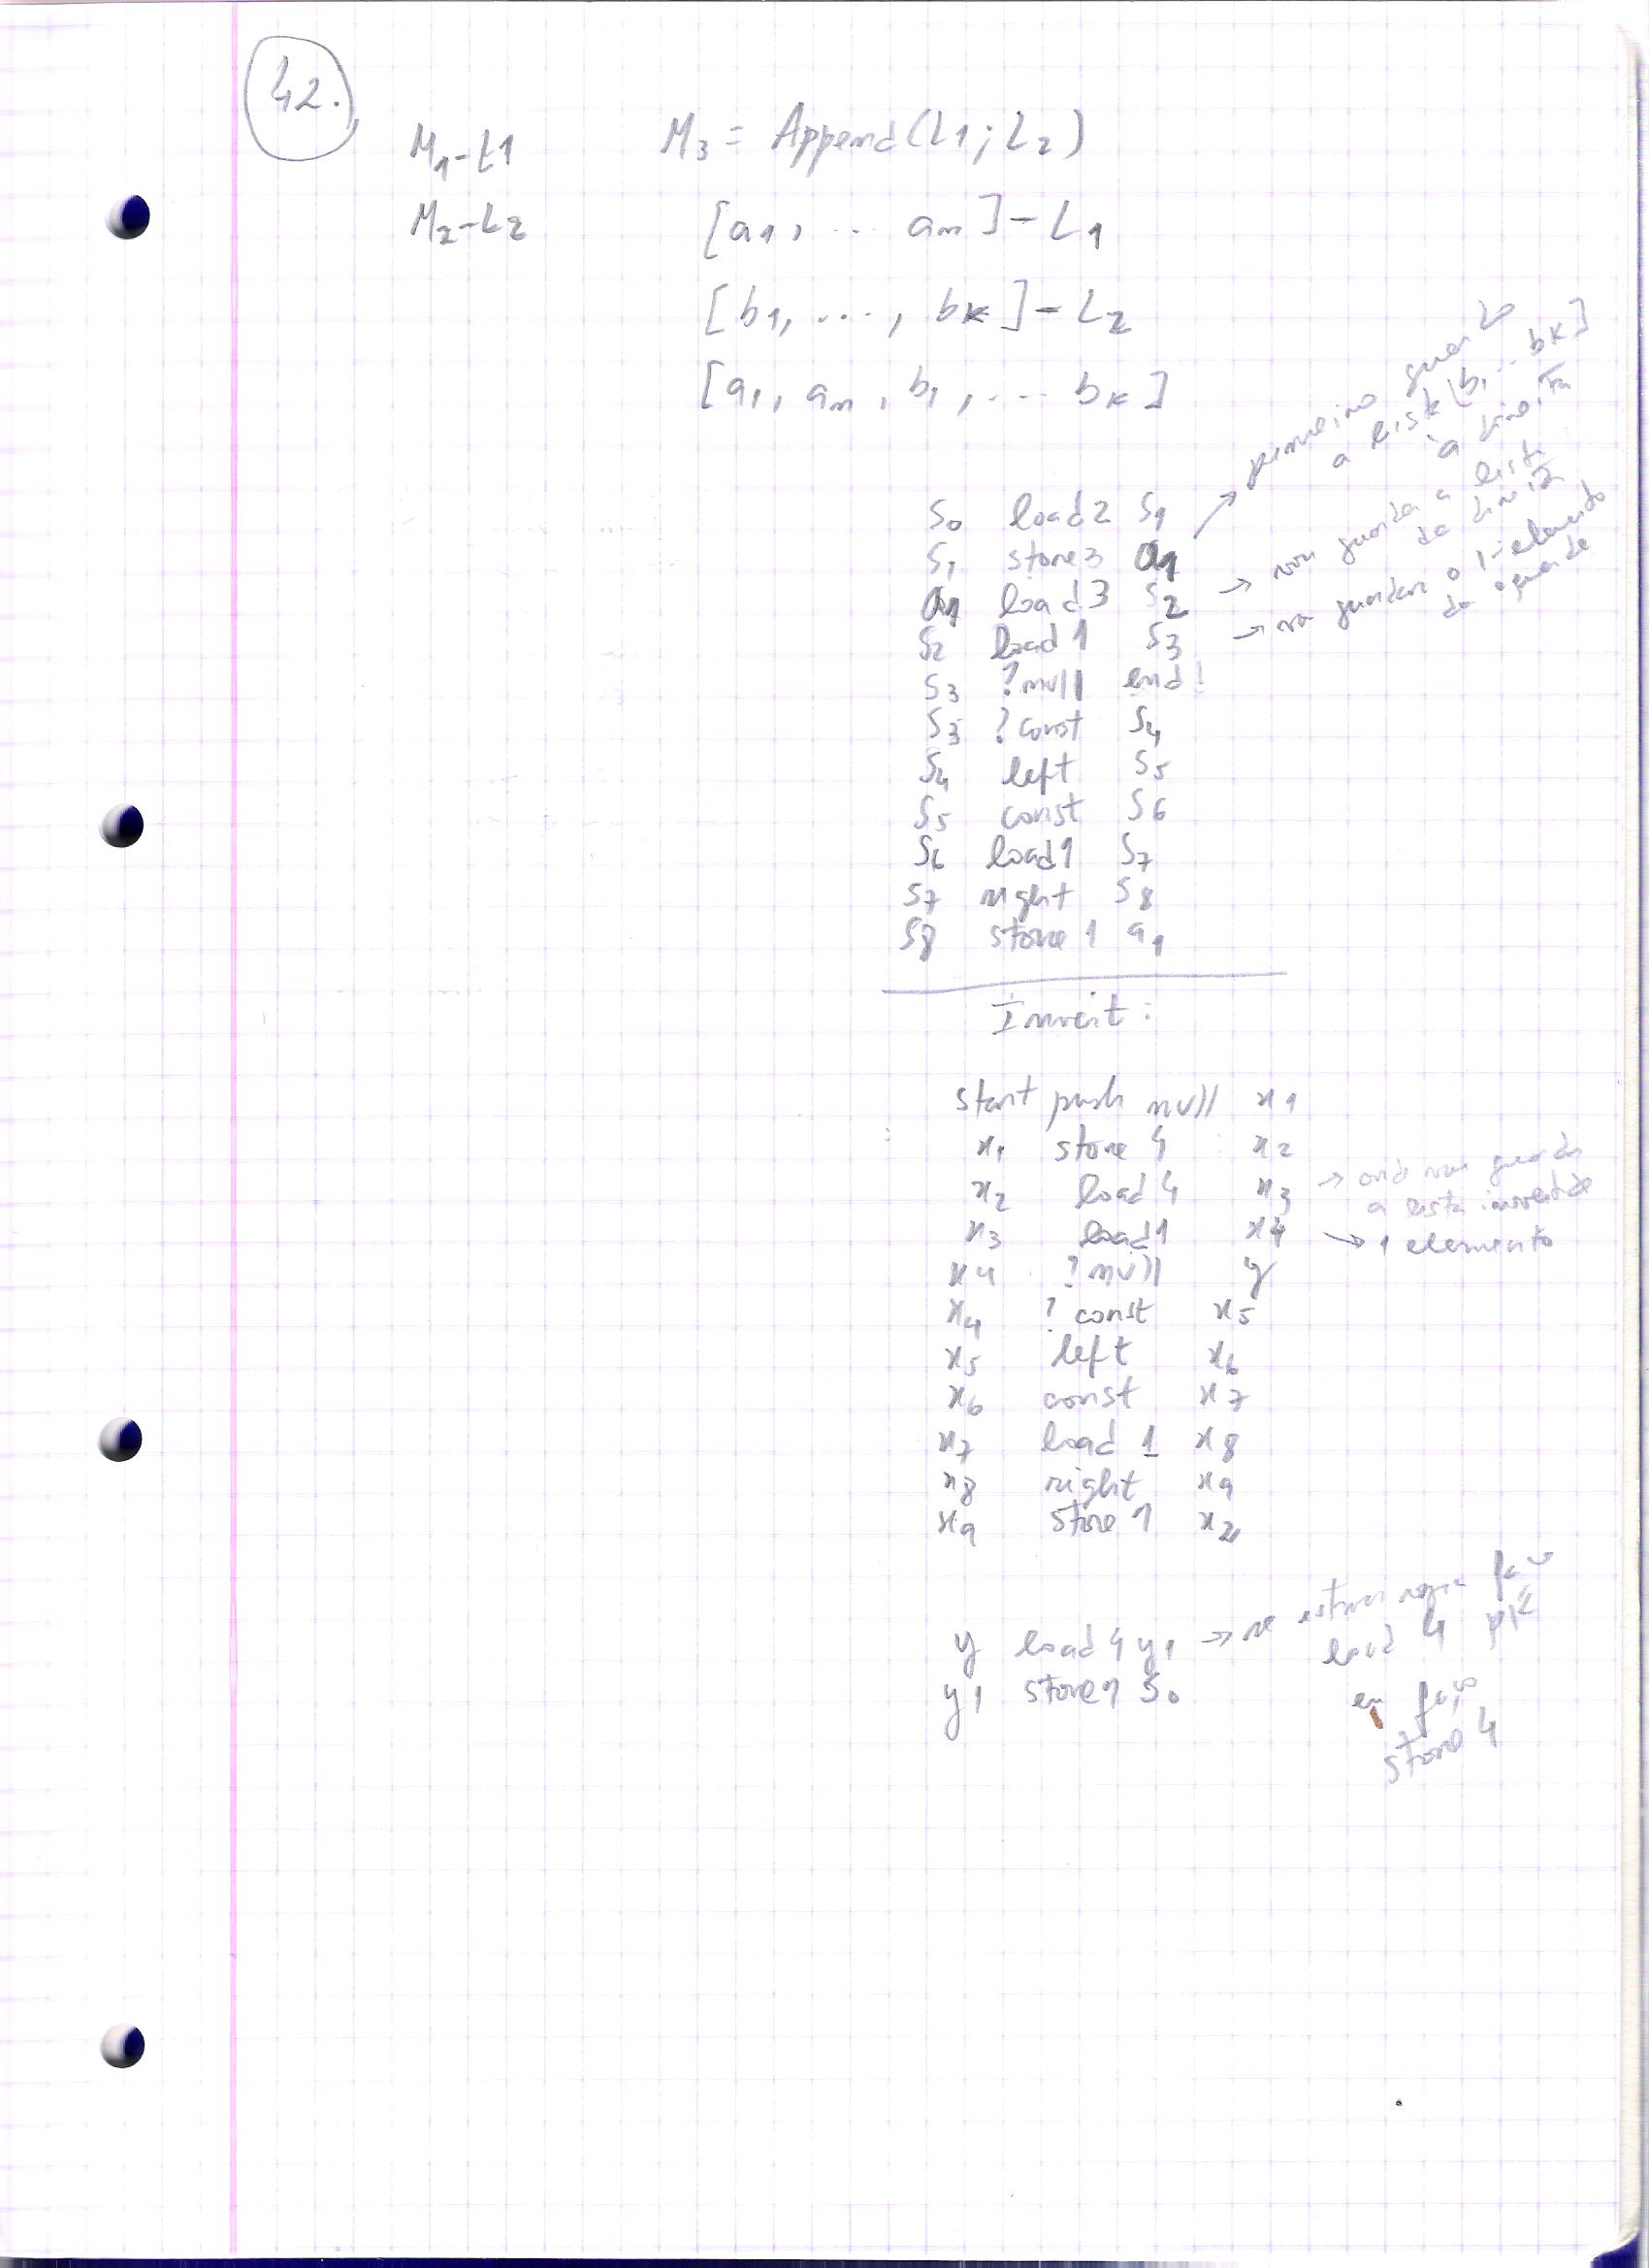 42.
M1-L1 M3 = Append(L1; L2)
M2-L2 [a1, .. an] - L1
[b1, ..., bk] - L2
[a1, an, b1, ... bk]
S0 load2 S1 → primeiro guardo
a lista [b1 .. bk]
à direita
S1 store3 a1
a1 load3 S2 → vou guardar a lista
da direita
S2 load1 S3 → vou guardar o 1º elemento
da esquerda
S3 ?null end!
S3 ?const S4
S4 left S5
S5 const S6
S6 load1 S7
S7 right S8
S8 store 1 a1
Invert:
start push null x1
x1 store 4 x2
x2 load 4 x3 → onde vou guardar
a lista invertida
x3 load1 x4 → 1 elemento
x4 ?null y
x4 ? const x5
x5 left x6
x6 const x7
x7 load 1 x8
x8 right x9
x9 store 1 x2
y load 4 y1 → se estou
load 4
y1 store1 S0
store 4